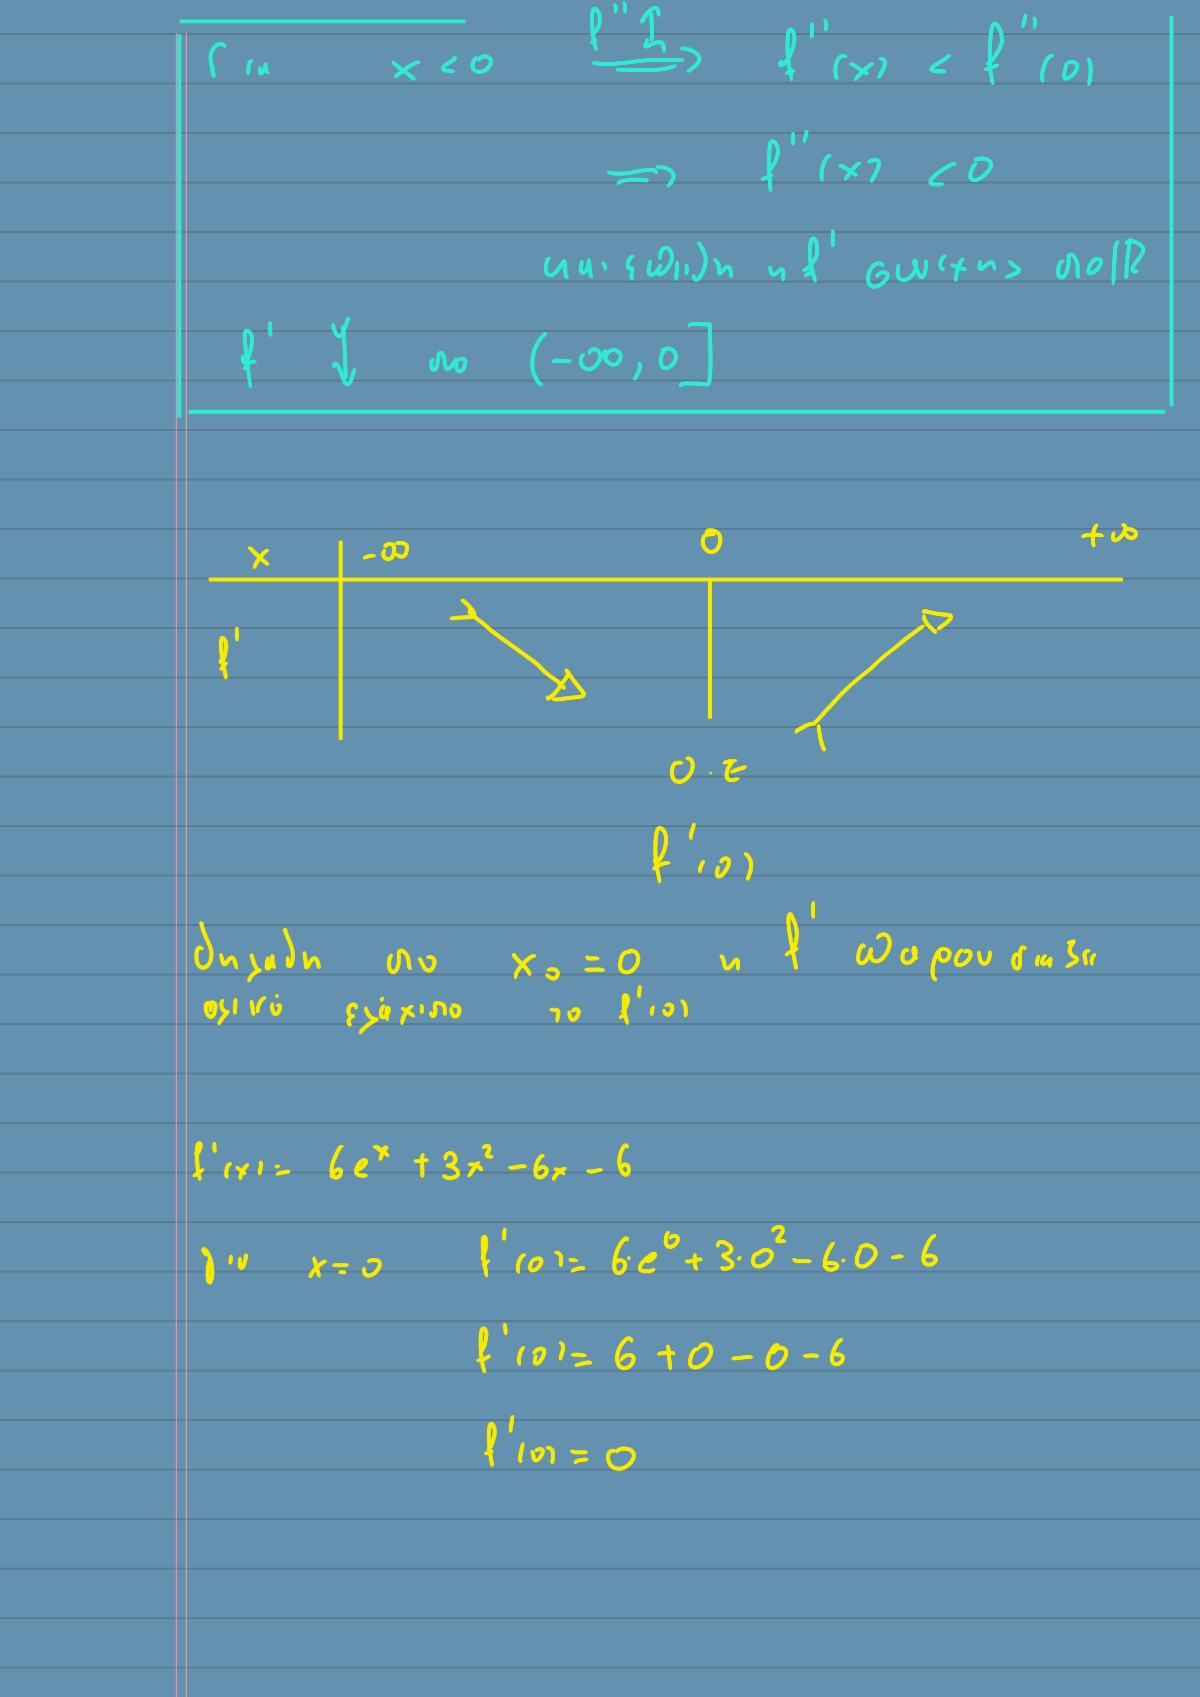 Για x < 0 f'' ↑ ⟹ f''(x) < f''(0)
⟹ f''(x) < 0
και επειδή η f' συνεχής στο ℝ
f' ↓ στο (-∞, 0]
x -∞ 0 +∞
f'
Ο.Ε
f'(0)
δηλαδή στο x₀ = 0 η f' παρουσιάζει
ολικό ελάχιστο το f'(0)
f'(x) = 6eˣ + 3x² - 6x - 6
για x = 0 f'(0) = 6·e⁰ + 3·0² - 6·0 - 6
f'(0) = 6 + 0 - 0 - 6
f'(0) = 0